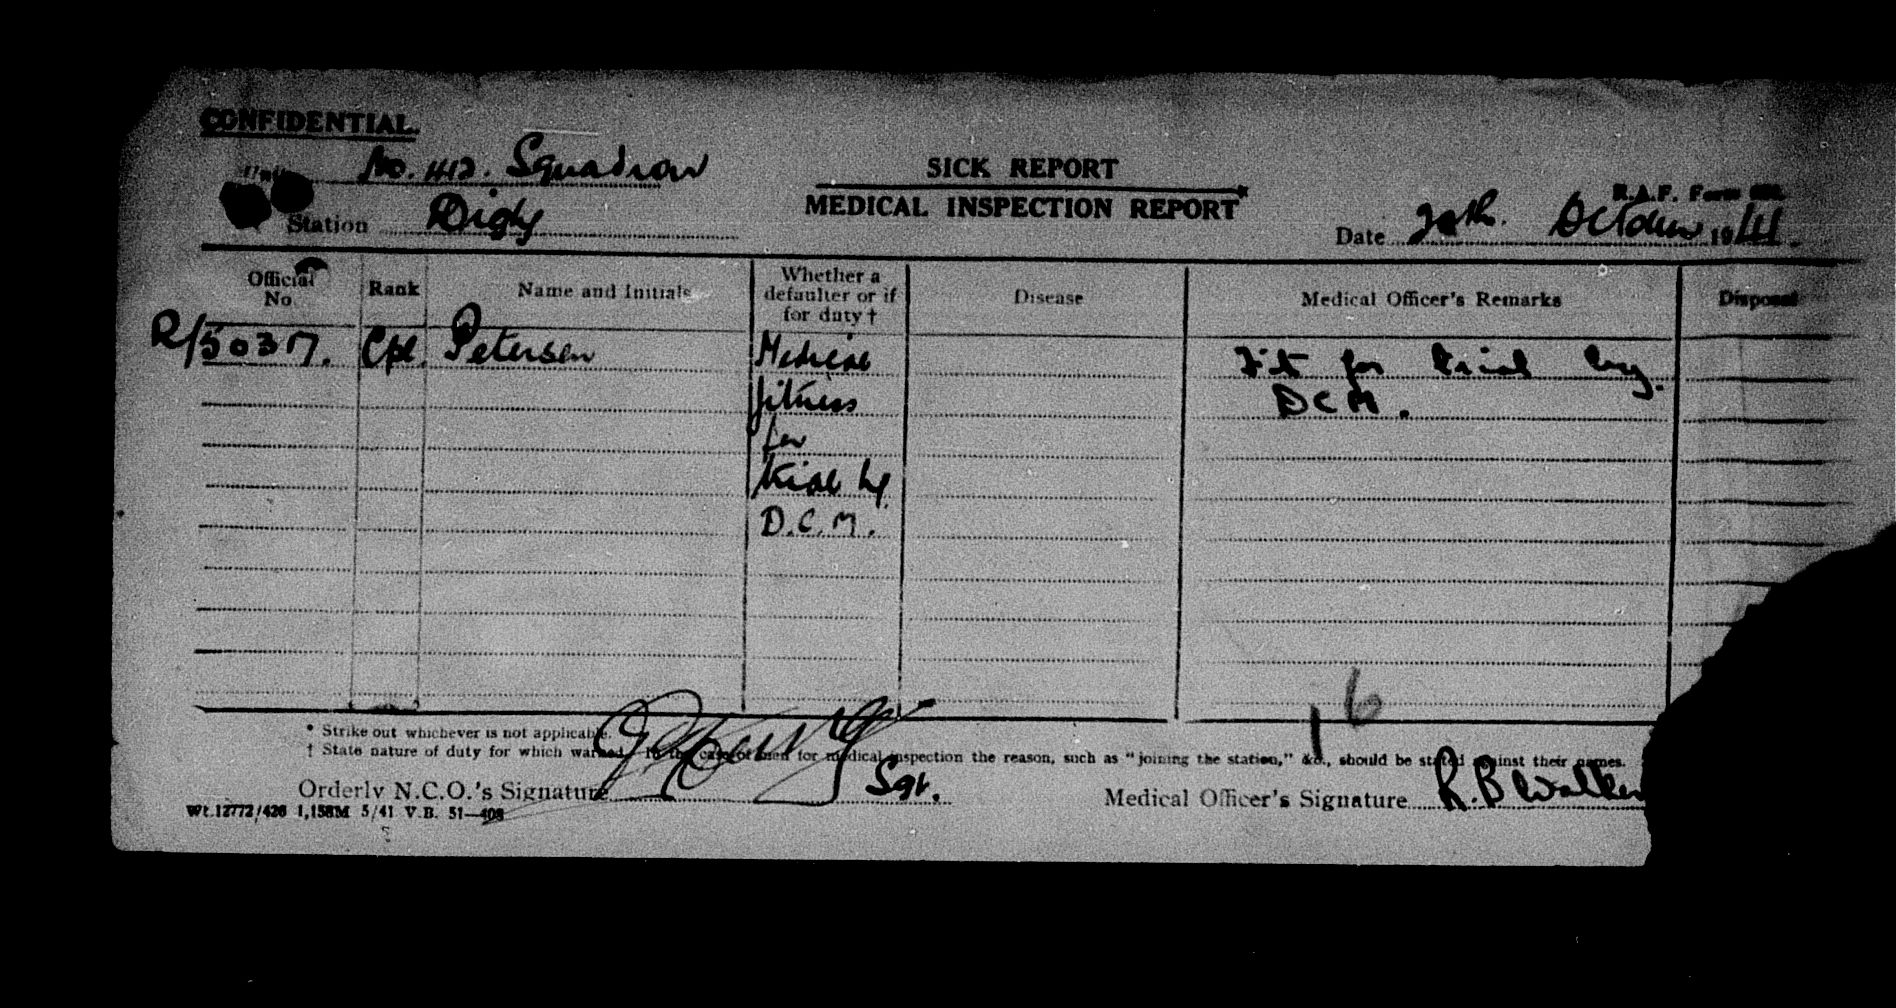 CONFIDENTIAL.
Unit No. 412. Squadron
SICK REPORT
MEDICAL INSPECTION REPORT*
R.A.F. Form
Station Digby
Date 20th. October 1941.
Official No. Rank Name and Initials Whether a defaulter or if for duty † Disease Medical Officer's Remarks Disposal
R/5037. Cpl. Petersen Medical Fit for trial by
fitness D C M.
for
trial by
D.C.M.
16
* Strike out whichever is not applicable.
† State nature of duty for which warned. In the case of men for medical inspection the reason, such as "joining the station," &c., should be stated against their names.
Orderly N.C.O.'s Signature Sgt. Medical Officer's Signature R. B Walker
Wt.12772/426 1,158M 5/41 V.B. 51—408